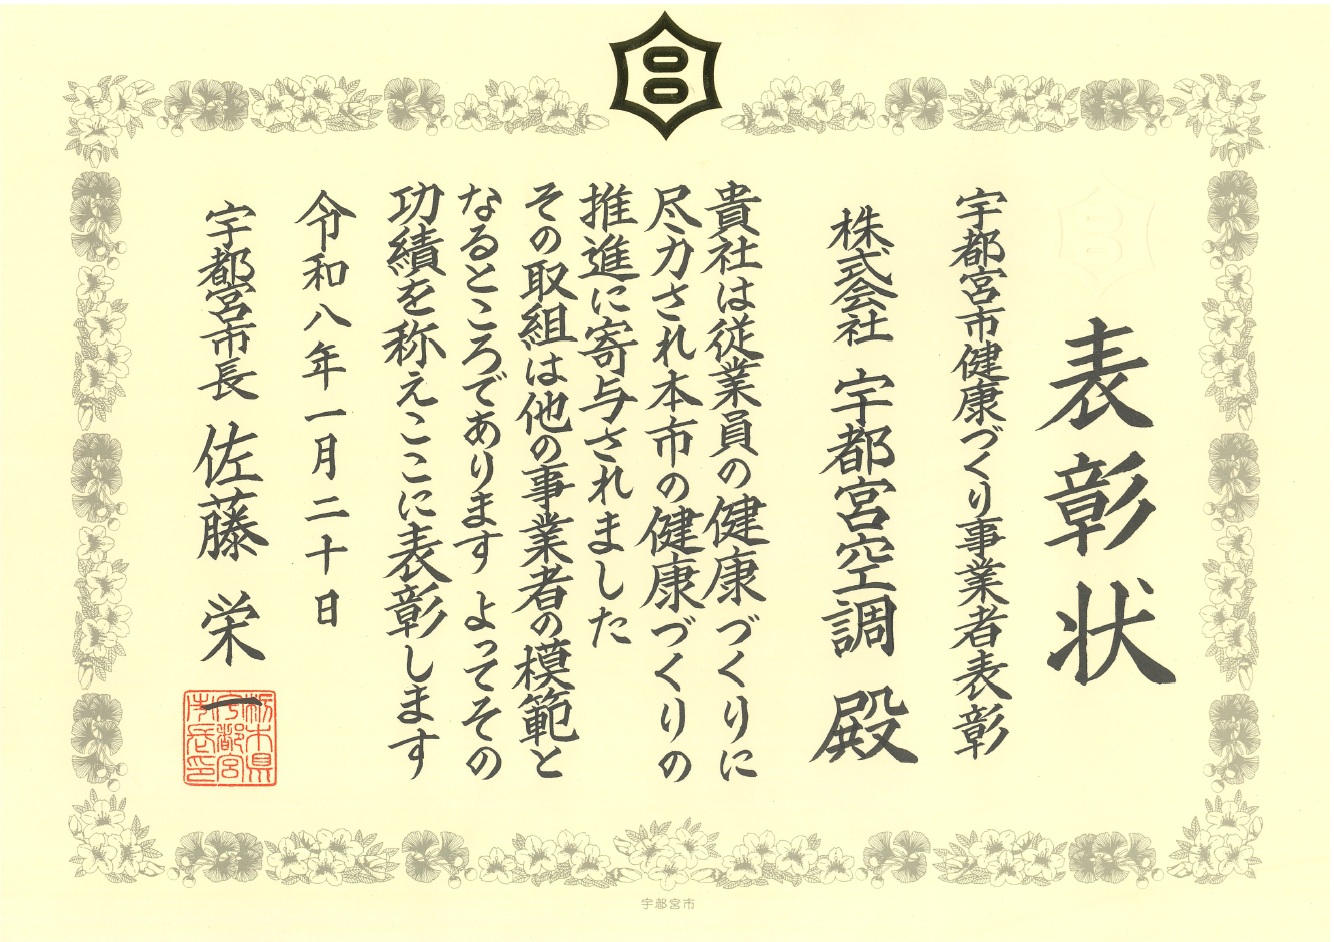 表彰状
宇都宮市健康づくり事業者表彰
株式会社 宇都宮空調 殿
貴社は従業員の健康づくりに
尽力され本市の健康づくりの
推進に寄与されました
その取組は他の事業者の模範と
なるところであります よってその
功績を称えここに表彰します
令和八年一月二十日
宇都宮市長 佐藤 栄一
栃木県
宇都宮
市長印
宇都宮市